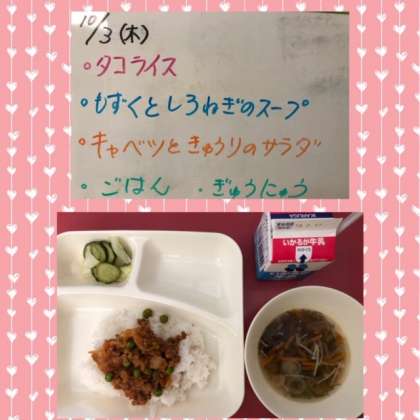 10/3(木)
◦タコライス
◦もずくとしろねぎのスープ
◦キャベツときゅうりのサラダ
◦ごはん ・ぎゅうにゅう
IKARUGA
いかるが牛乳